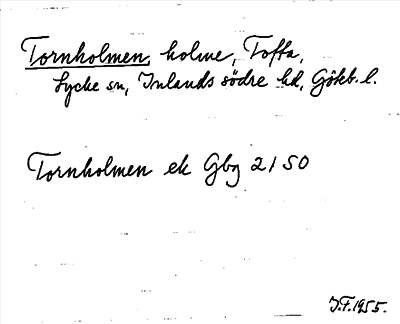 Tornholmen, holme, Toffa,
Lycke sn, Inlands södre hd, Gökb. l.
Tornholmen ek Gbg 2150
J.F. 1955.